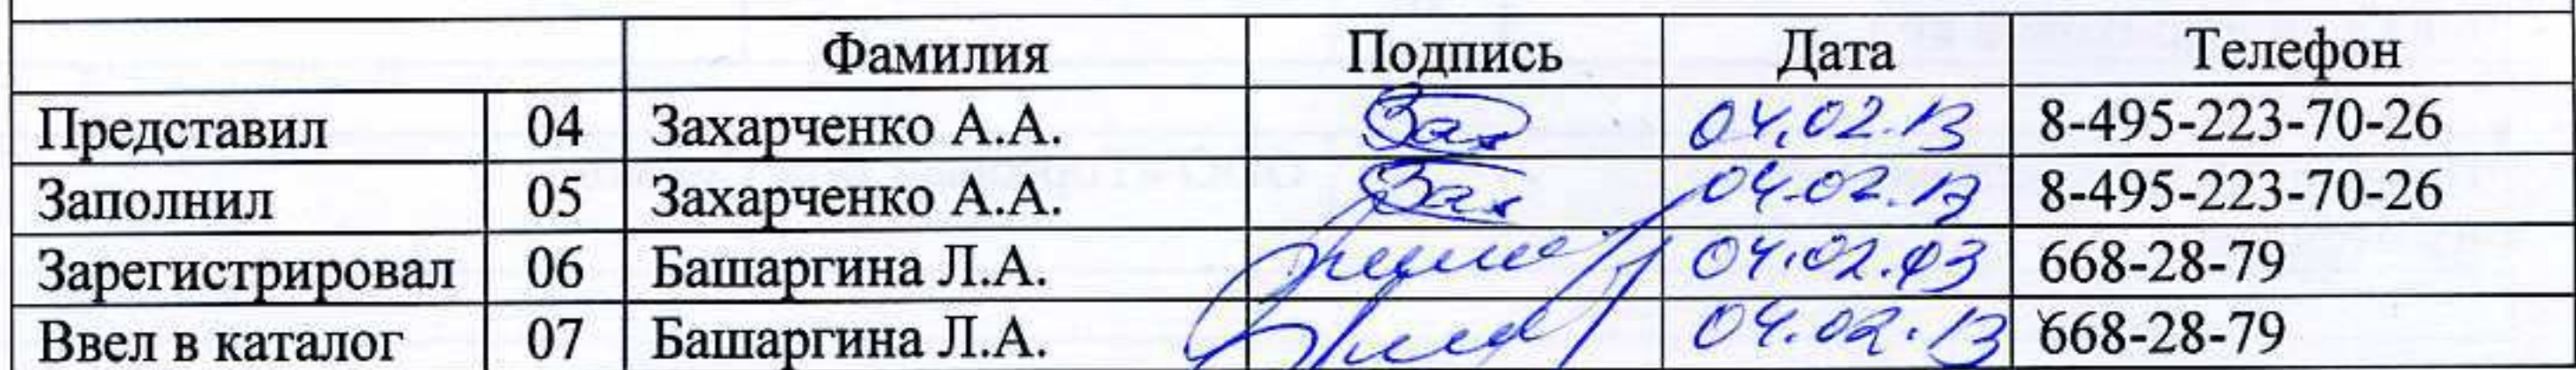 Фамилия Подпись Дата Телефон
Представил 04 Захарченко А.А. Зах 04.02.13 8-495-223-70-26
Заполнил 05 Захарченко А.А. Зах 04.02.13 8-495-223-70-26
Зарегистрировал 06 Башаргина Л.А. 04.02.13 668-28-79
Ввел в каталог 07 Башаргина Л.А. 04.02.13 668-28-79